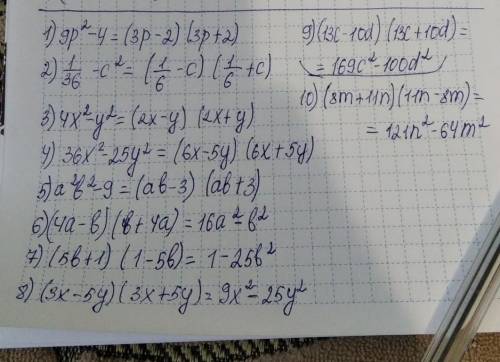 1) 9p²-4=(3p-2)(3p+2)
2) 1/36 -c²=(1/6 -c)(1/6 +c)
3) 4x²-y²=(2x-y)(2x+y)
4) 36x²-25y²=(6x-5y)(6x+5y)
5) a²b²-9=(ab-3)(ab+3)
6) (4a-b)(b+4a)=16a²-b²
7) (5b+1)(1-5b)=1-25b²
8) (3x-5y)(3x+5y)=9x²-25y²
9) (13c-10d)(13c+10d)=
=169c²-100d²
10) (8m+11n)(11n-8m)=
=121n²-64m²